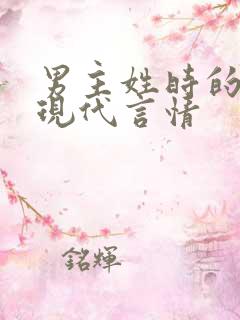 男主姓時的
現代言情
銘輝